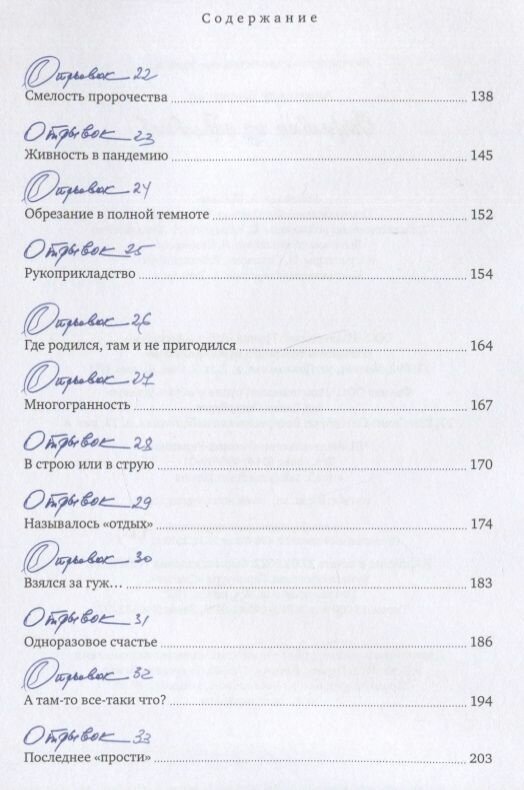 Содержание
Отрывок 22
Смелость пророчества 138
Отрывок 23
Живность в пандемию 145
Отрывок 24
Обрезание в полной темноте 152
Отрывок 25
Рукоприкладство 154
Отрывок 26
Где родился, там и не пригодился 164
Отрывок 27
Многогранность 167
Отрывок 28
В строю или в струю 170
Отрывок 29
Называлось «отдых» 174
Отрывок 30
Взялся за гуж... 183
Отрывок 31
Одноразовое счастье 186
Отрывок 32
А там-то все-таки что? 194
Отрывок 33
Последнее «прости» 203